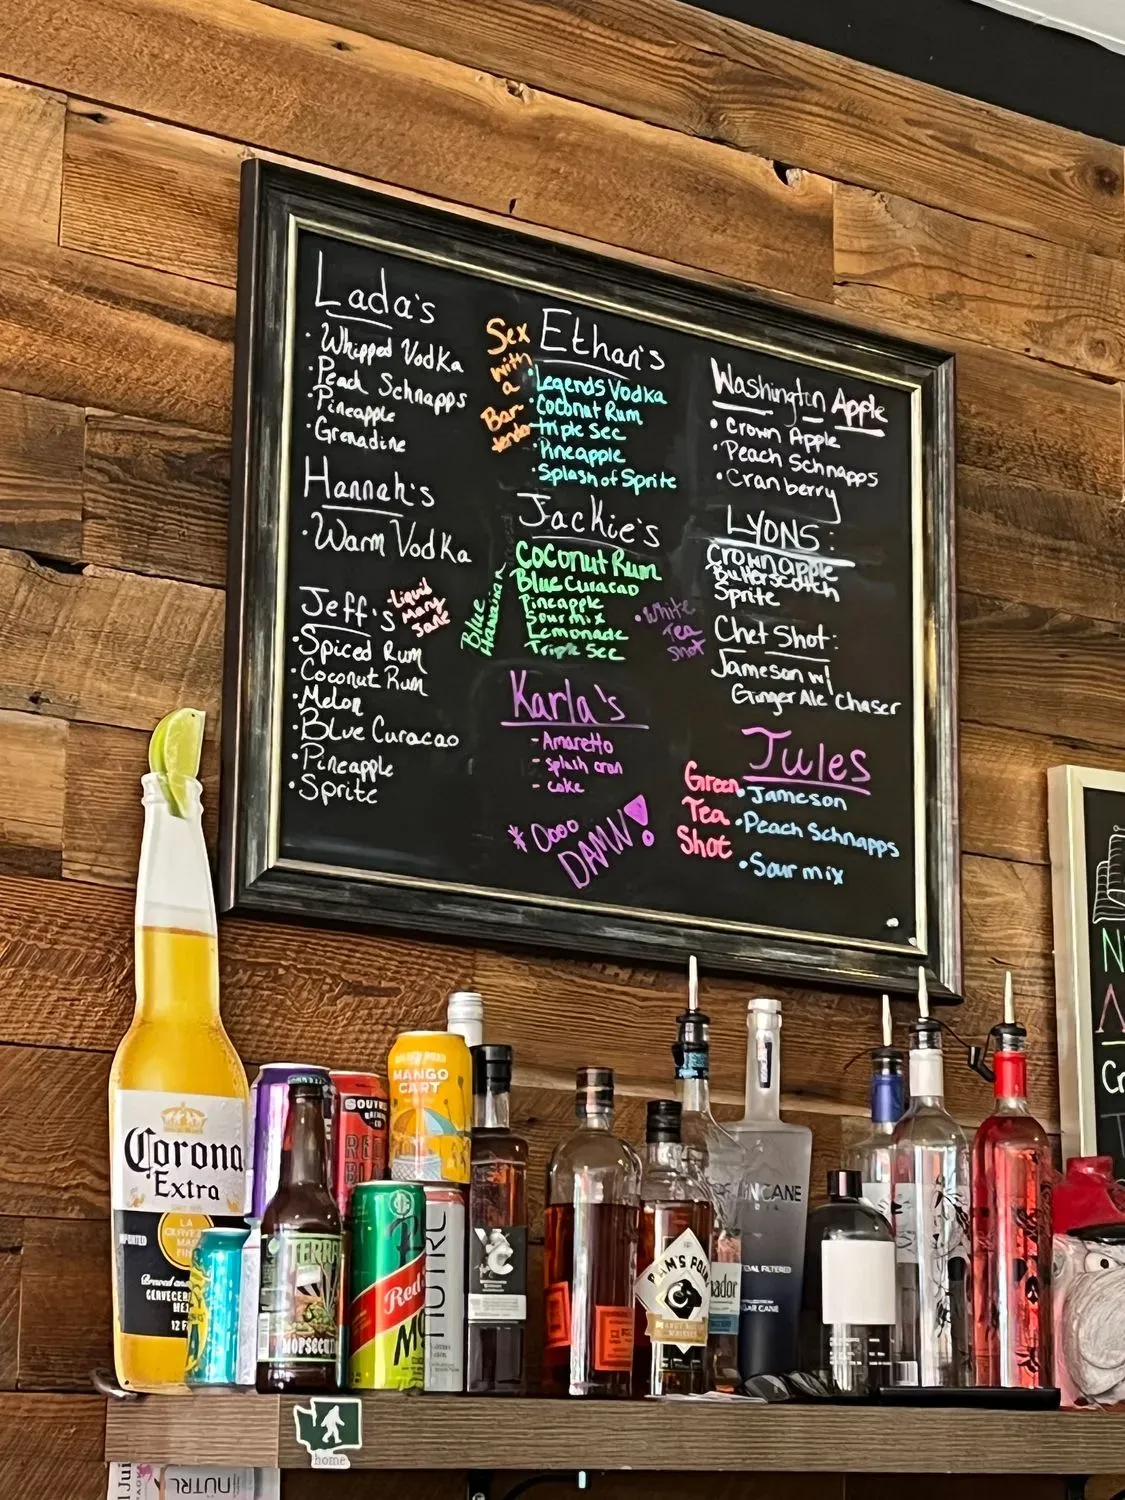 Lada's
• Whipped Vodka
• Peach Schnapps
• Pineapple
• Grenadine
Hannah's
• Warm Vodka
Jeff's
• Liquid
Mary
Jane
• Spiced Rum
• Coconut Rum
• Melon
• Blue Curacao
• Pineapple
• Sprite
Sex
with
a
Bar-
tender
Ethan's
• Legends Vodka
• Coconut Rum
• triple Sec
• Pineapple
• Splash of Sprite
Jackie's
Blue
Hawaiian
Coconut Rum
Blue Curacao
Pineapple
Sour mix
Lemonade
Triple Sec
Karla's
- Amaretto
- splash cran
- coke
* Oooo
DAMN!
Washington Apple
• Crown Apple
• Peach Schnapps
• Cranberry
LYONS:
Crown apple
Butterscotch
Sprite
• White
Tea
Shot
Chet Shot:
Jameson w/
Ginger Ale Chaser
Jules
Green
Tea
Shot
• Jameson
• Peach Schnapps
• Sour mix
Corona
Extra
LA
CERVEZA
MAS
FINA
IMPORTED
MANGO
CART
Red
NUTRL
CANE
TAL FILTERED
GAR CANE
ador
home
NUTRL